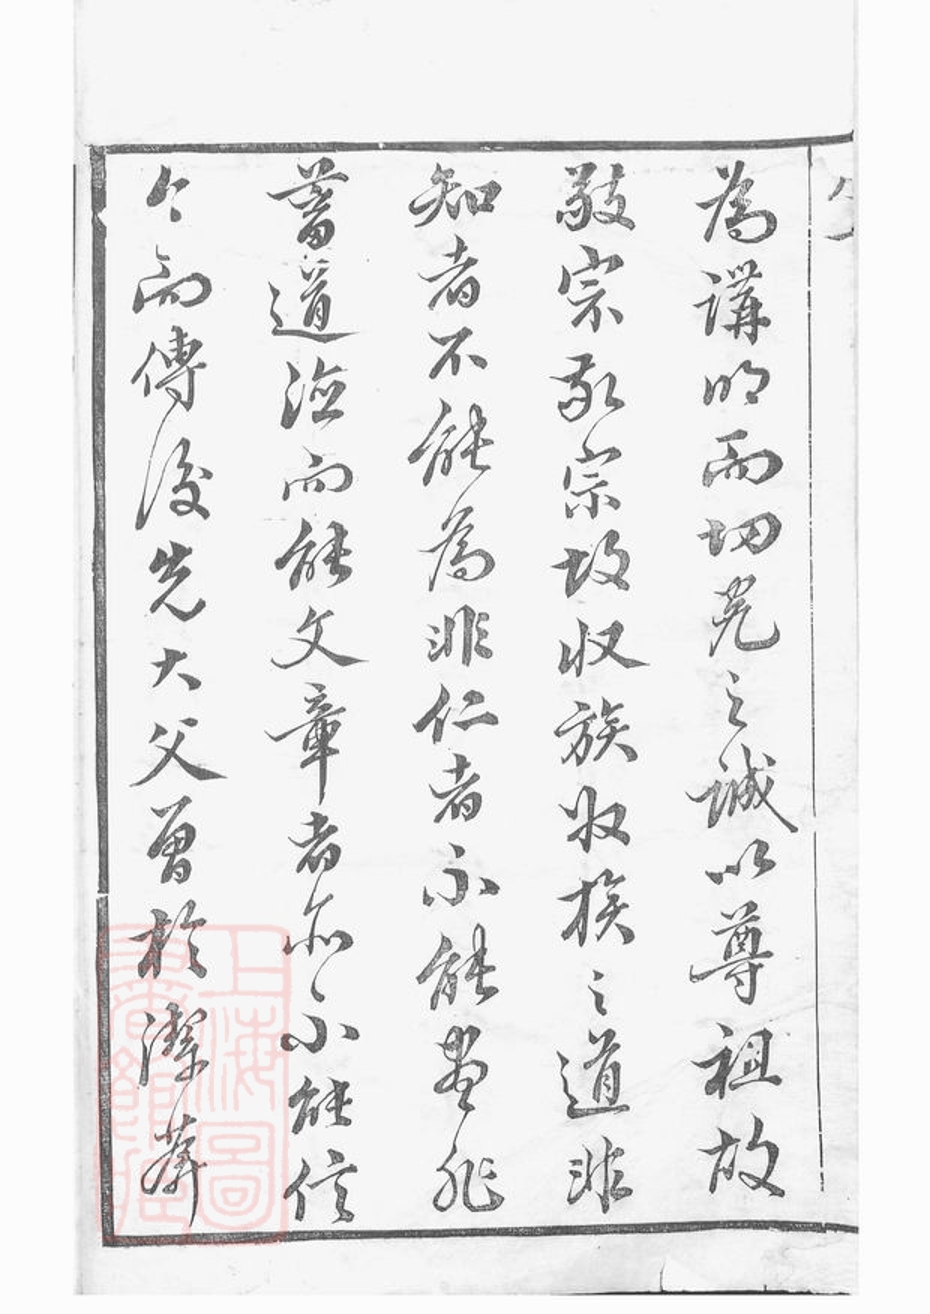 為講明而切究之誠以尊祖故
敬宗敬宗故收族收族之道非
知者不能為非仁者不能盡非
蓄道德而能文章者亦不能信
今而傳後先大父曾於潔葊
上海圖書館藏